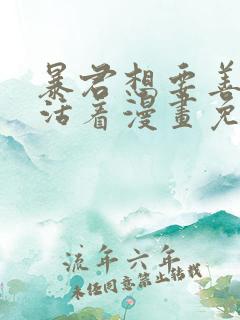 暴君想要善
活着漫畫免
流年六年
未经同意禁止转载